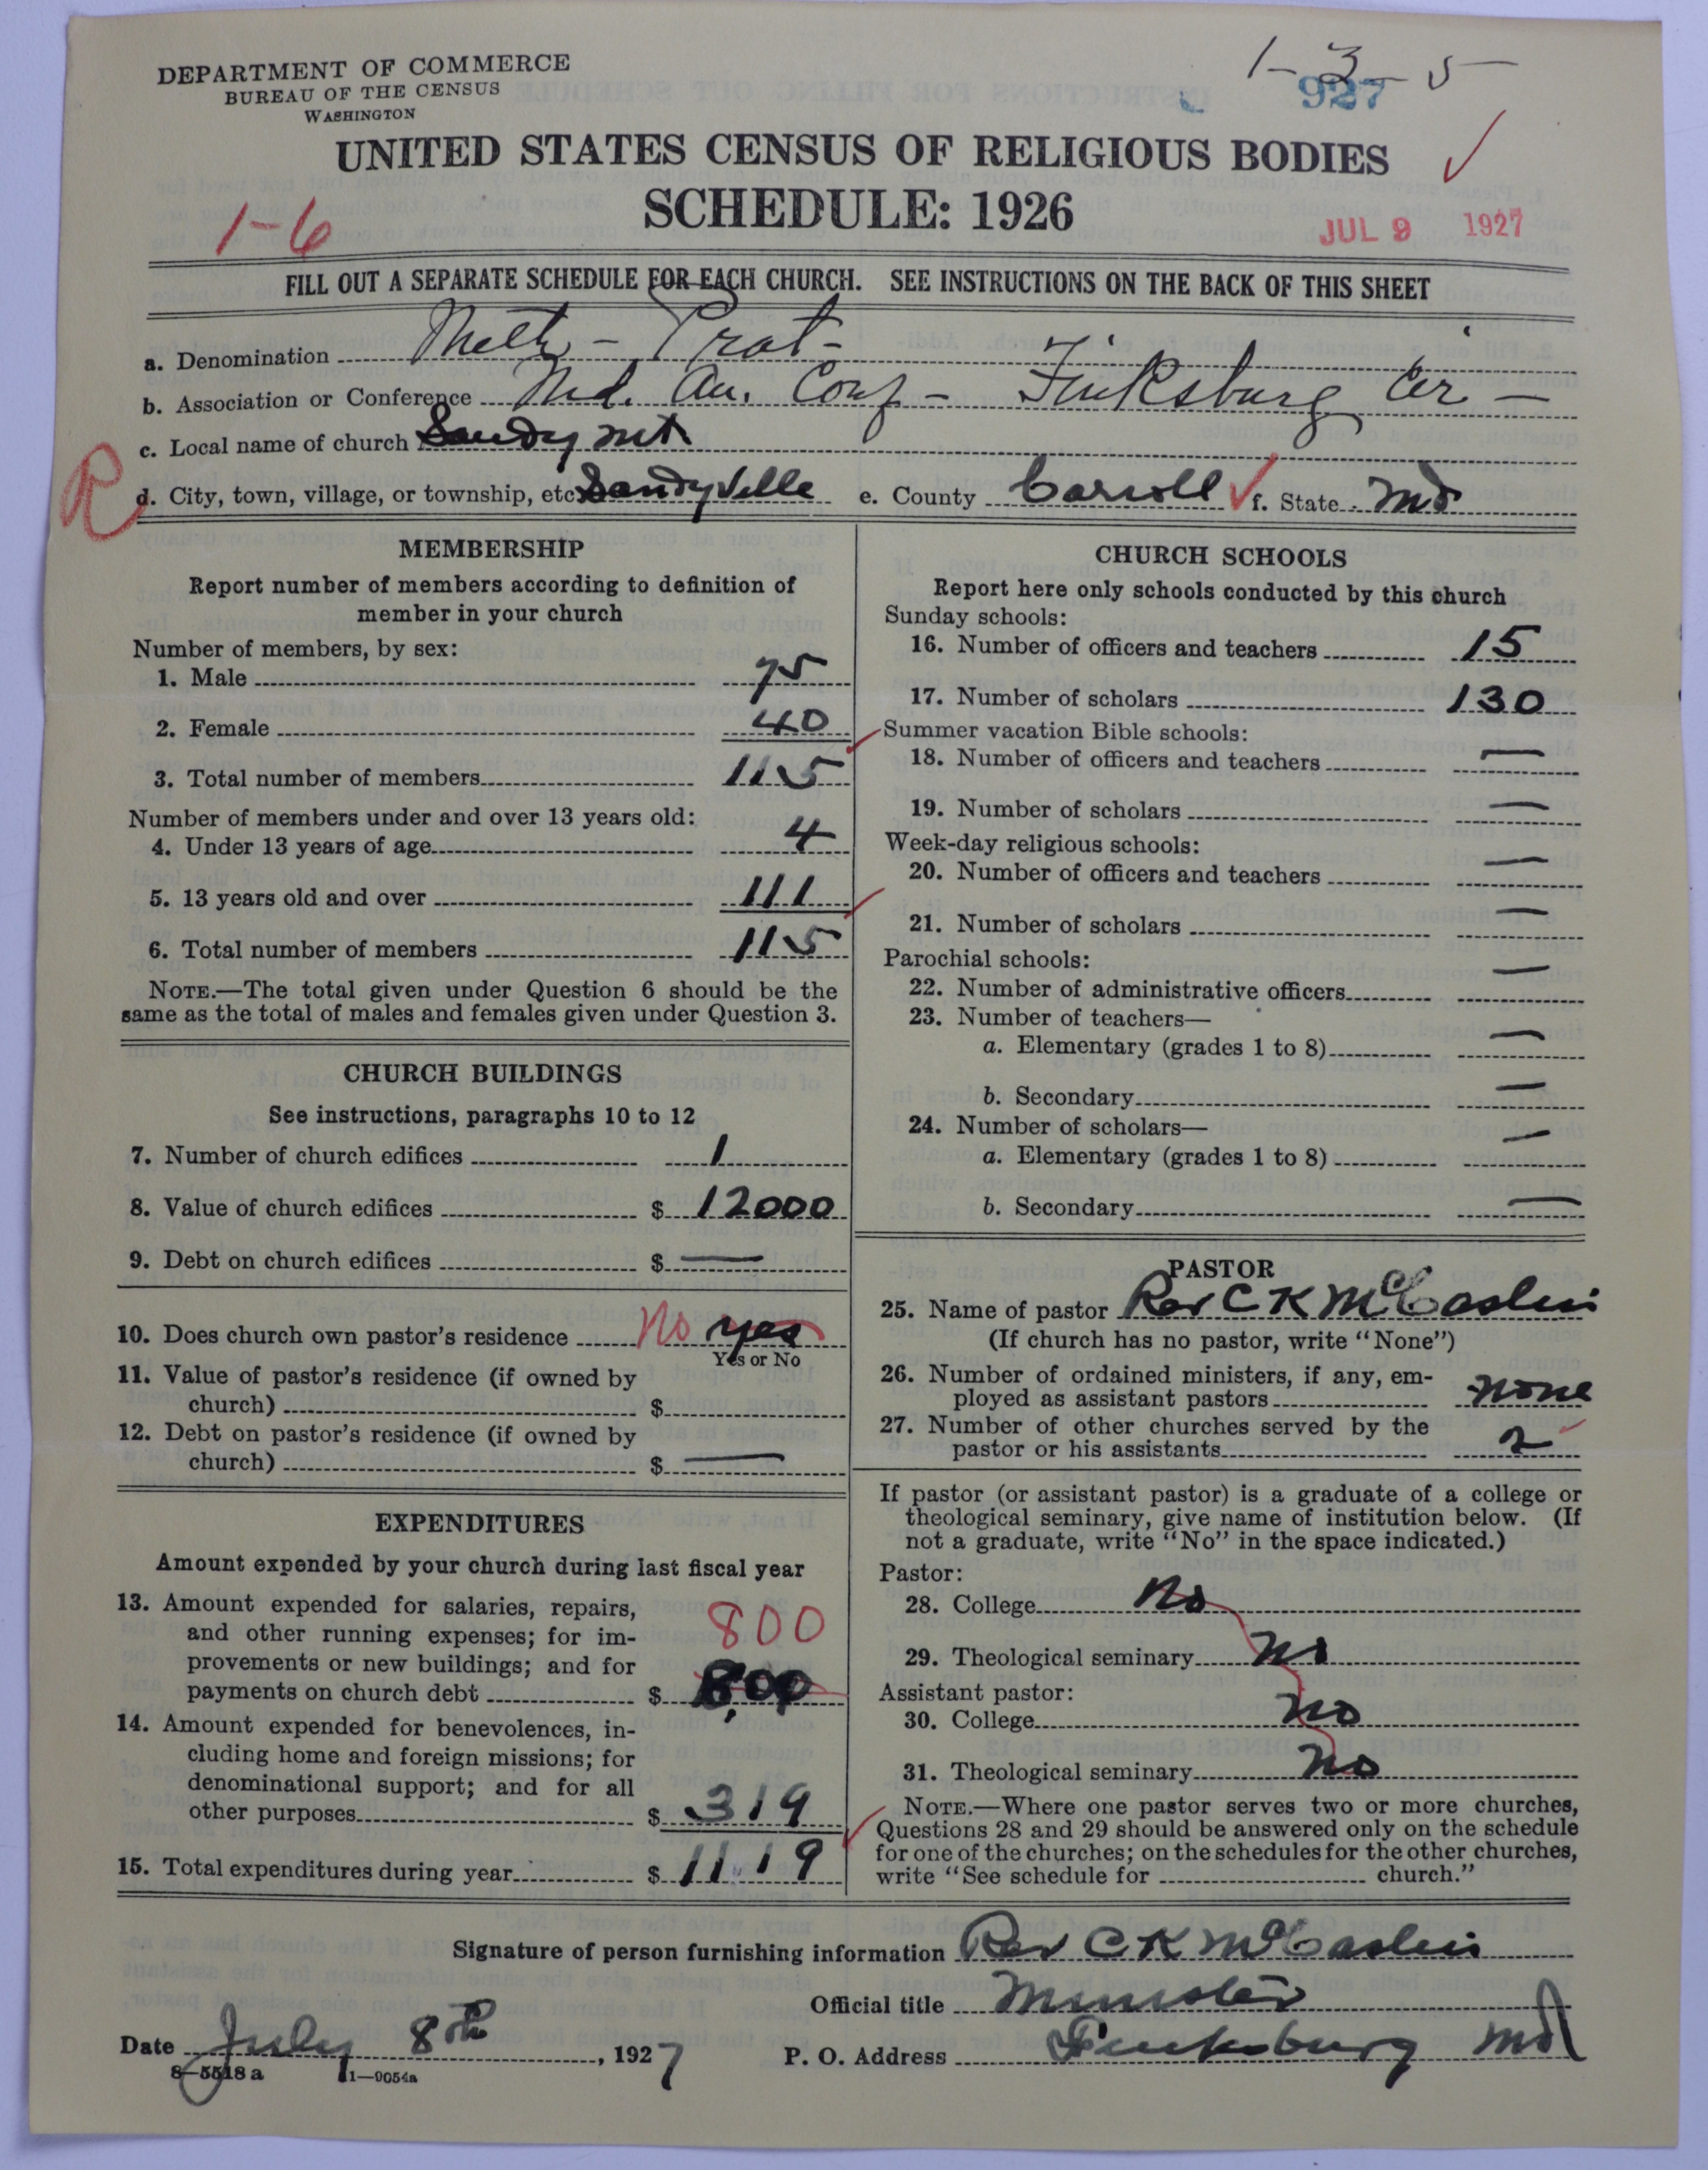 DEPARTMENT OF COMMERCE
BUREAU OF THE CENSUS
WASHINGTON
1-3-5
927
UNITED STATES CENSUS OF RELIGIOUS BODIES
SCHEDULE: 1926
1-6
JUL 9 1927
FILL OUT A SEPARATE SCHEDULE FOR EACH CHURCH. SEE INSTRUCTIONS ON THE BACK OF THIS SHEET
a. Denomination Meth - Prot -
b. Association or Conference Md. An. Conf - Finksburg Cir -
c. Local name of church Sandy Mt
R
d. City, town, village, or township, etc Sandyville e. County Carroll f. State Md
MEMBERSHIP
Report number of members according to definition of
member in your church
Number of members, by sex:
1. Male 75
2. Female 40
3. Total number of members 115
Number of members under and over 13 years old:
4. Under 13 years of age 4
5. 13 years old and over 111
6. Total number of members 115
NOTE.—The total given under Question 6 should be the
same as the total of males and females given under Question 3.
CHURCH BUILDINGS
See instructions, paragraphs 10 to 12
7. Number of church edifices 1
8. Value of church edifices $ 12000
9. Debt on church edifices $ —
10. Does church own pastor's residence No yes
Yes or No
11. Value of pastor's residence (if owned by
church) $
12. Debt on pastor's residence (if owned by
church) $ —
EXPENDITURES
Amount expended by your church during last fiscal year
13. Amount expended for salaries, repairs,
and other running expenses; for im-
provements or new buildings; and for
payments on church debt $ 800
800
14. Amount expended for benevolences, in-
cluding home and foreign missions; for
denominational support; and for all
other purposes $ 319
15. Total expenditures during year $ 1119
CHURCH SCHOOLS
Report here only schools conducted by this church
Sunday schools:
16. Number of officers and teachers 15
17. Number of scholars 130
Summer vacation Bible schools:
18. Number of officers and teachers —
19. Number of scholars —
Week-day religious schools:
20. Number of officers and teachers —
21. Number of scholars —
Parochial schools:
22. Number of administrative officers —
23. Number of teachers—
a. Elementary (grades 1 to 8) —
b. Secondary —
24. Number of scholars—
a. Elementary (grades 1 to 8) —
b. Secondary —
PASTOR
25. Name of pastor Rev C K McCaslin
(If church has no pastor, write "None")
26. Number of ordained ministers, if any, em-
ployed as assistant pastors none
27. Number of other churches served by the
pastor or his assistants 2
If pastor (or assistant pastor) is a graduate of a college or
theological seminary, give name of institution below. (If
not a graduate, write "No" in the space indicated.)
Pastor:
28. College No
29. Theological seminary No
Assistant pastor:
30. College No
31. Theological seminary No
NOTE.—Where one pastor serves two or more churches,
Questions 28 and 29 should be answered only on the schedule
for one of the churches; on the schedules for the other churches,
write "See schedule for church."
Signature of person furnishing information Rev C K McCaslin
Official title Minister
Date July 8th, 1927 P. O. Address Finksburg Md
8-5518 a 11-9054a